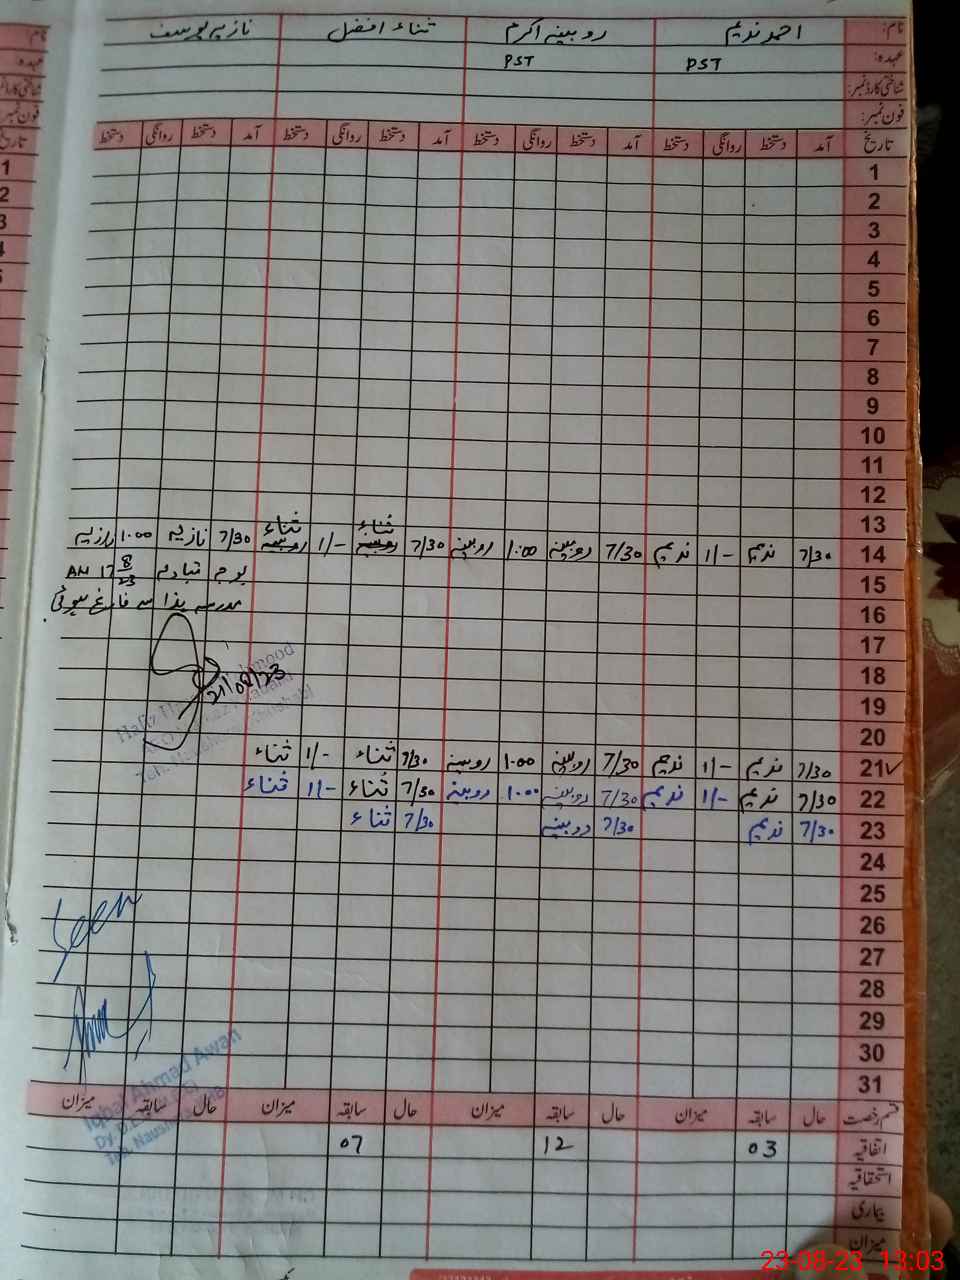 نام: احمد ندیم روبینہ اکرم ثناء افضل نازیہ یوسف
عہدہ: PST PST
شناختی کارڈ نمبر:
فون نمبر:
تاریخ آمد دستخط روانگی دستخط آمد دستخط روانگی دستخط آمد دستخط روانگی دستخط آمد دستخط روانگی دستخط
1
2
3
4
5
6
7
8
9
10
11
12
13
14 7/30 ندیم 1/- ندیم 7/30 روبینہ 1:00 روبینہ 7/30 ثناء 1/- ثناء 7/30 نازیہ 1:00 نازیہ
15 بوجہ تبادلہ 17 8/23 AN
16 مدرسہ ہذا سے فارغ ہوئی
17
18 21/08/23
19
20
21 7/30 ندیم 1/- ندیم 7/30 روبینہ 1:00 روبینہ 7/30 ثناء 1/- ثناء
22 7/30 ندیم 1/- ندیم 7/30 روبینہ 1:00 روبینہ 7/30 ثناء 1/- ثناء
23 7/30 ندیم 7/30 روبینہ 7/30 ثناء
24
25
26 Seen
27
28
29
30
31
Iqbal Ahmad Awan
قسم رخصت حال سابقہ میزان حال سابقہ میزان حال سابقہ میزان حال سابقہ میزان
اتفاقیہ 03 12 07
استحقاقیہ
بیماری
میزان
23-08-23 13:03